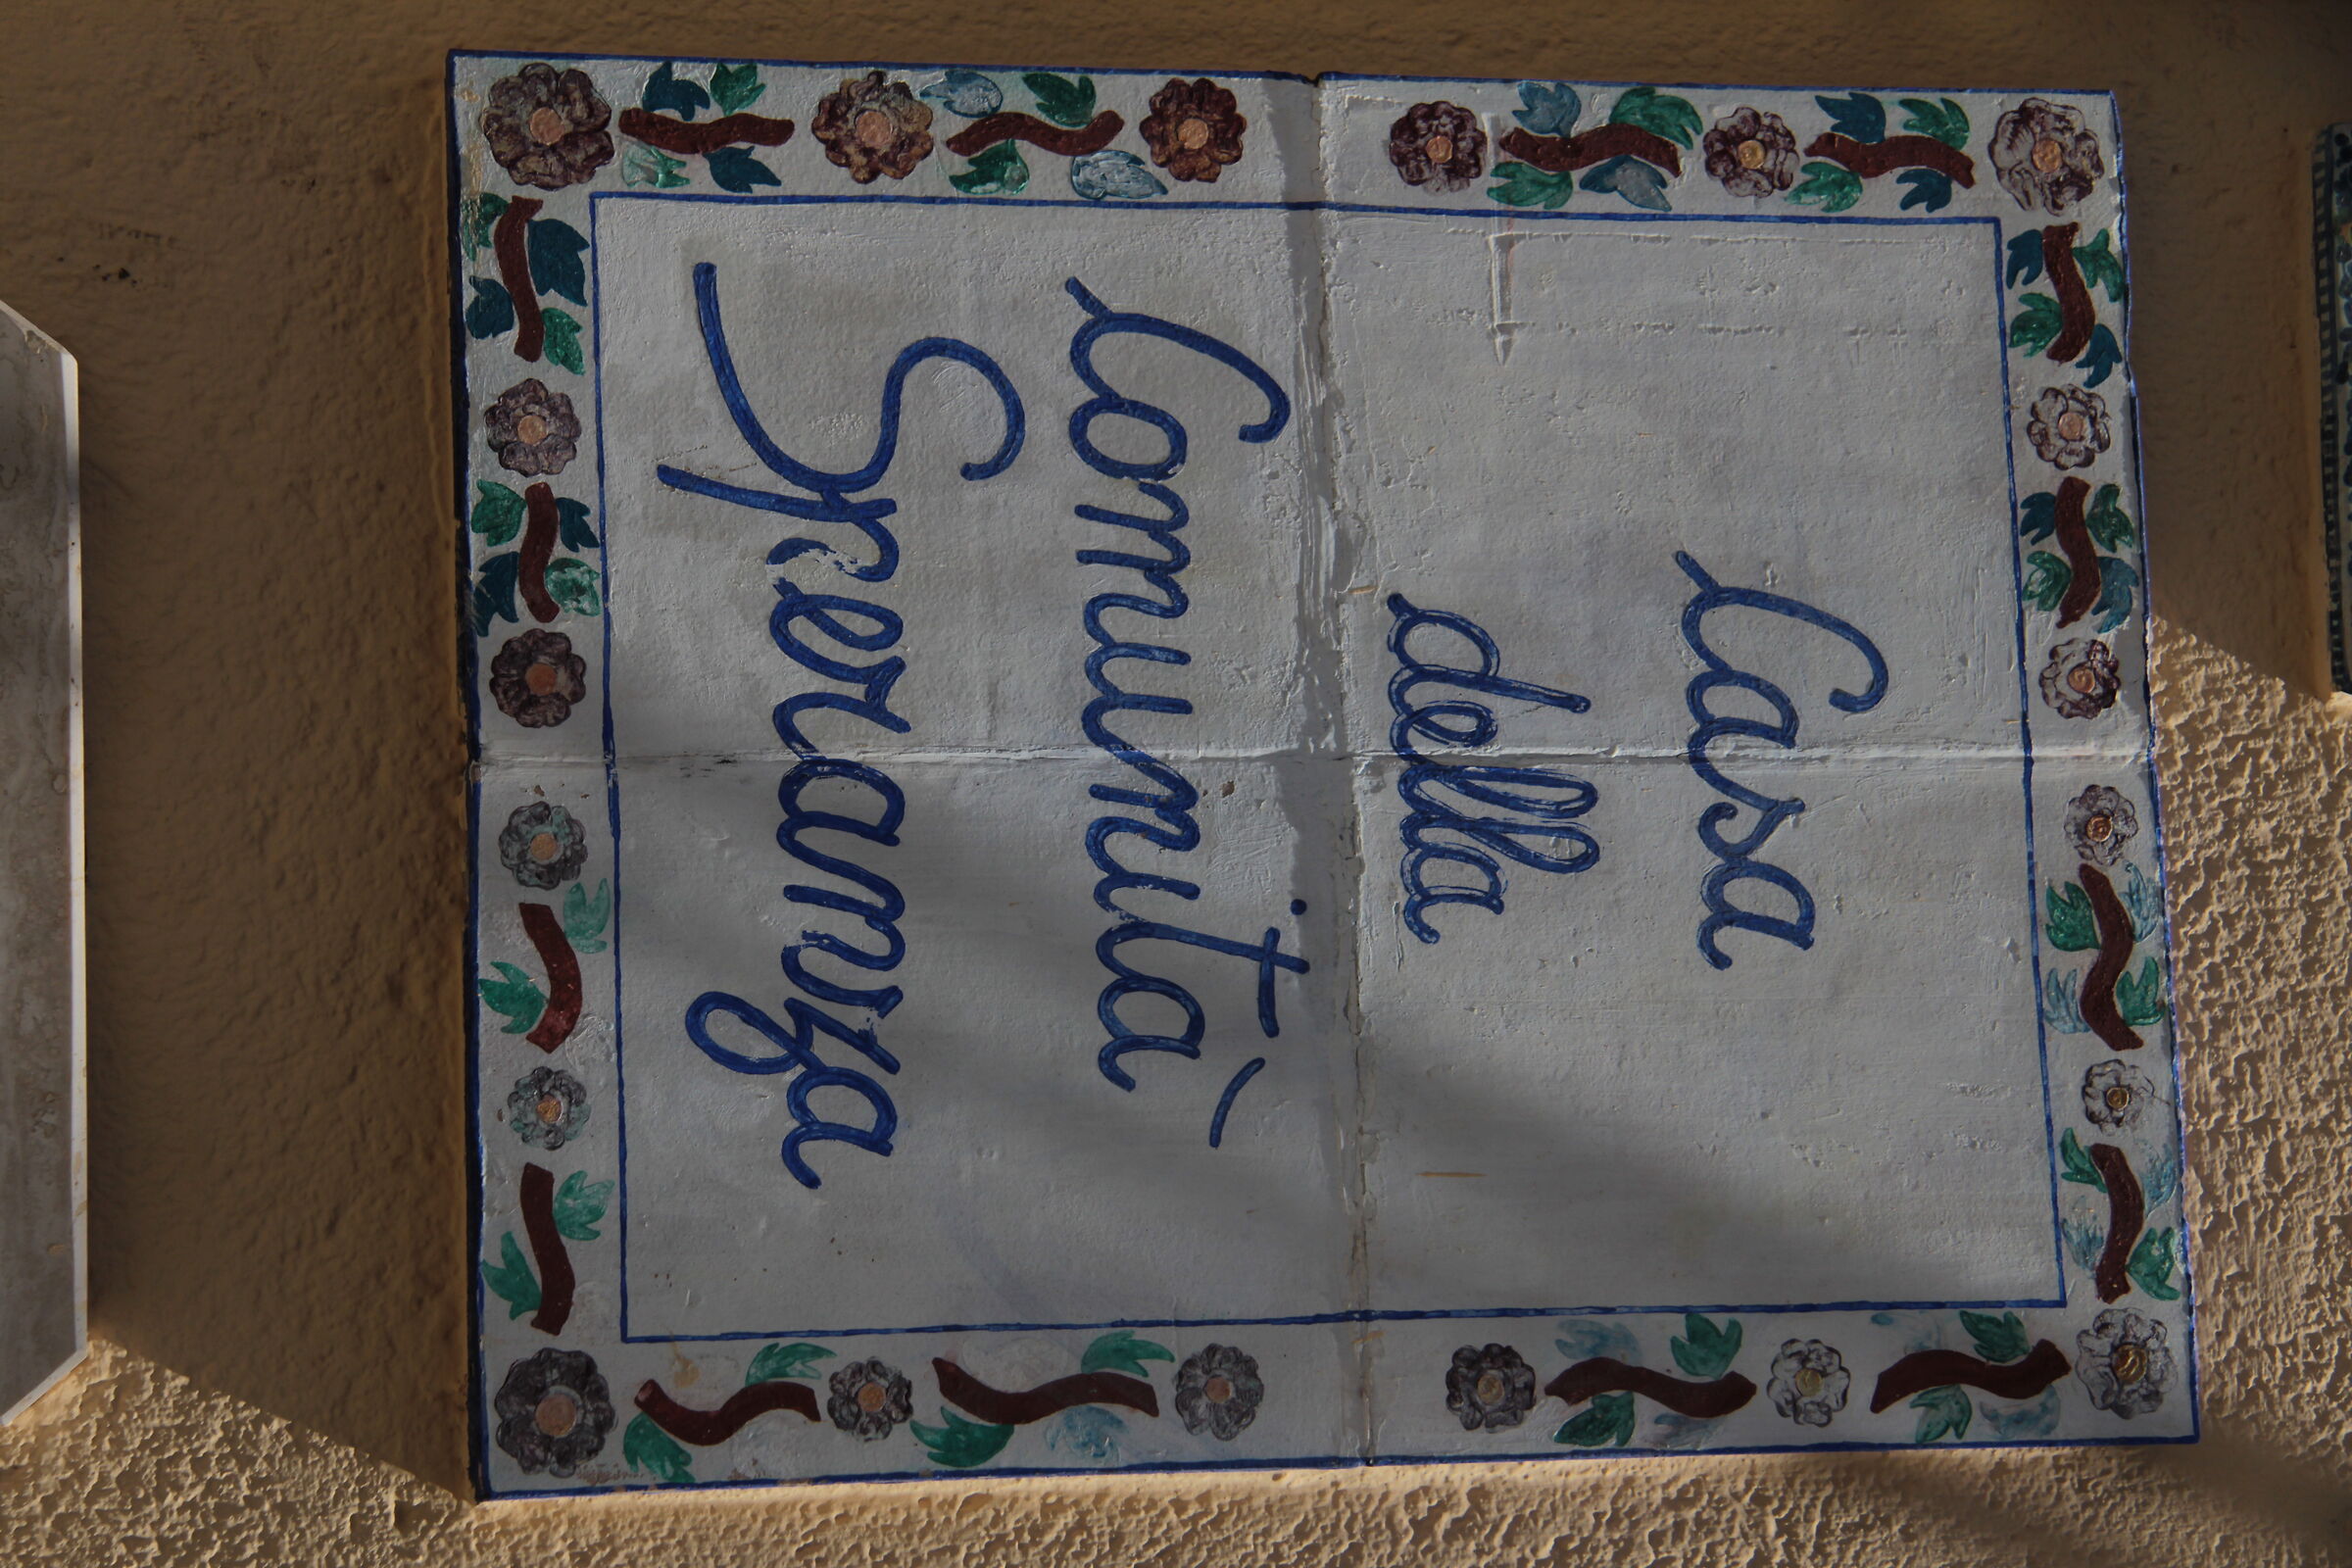 Casa
della
Comunità
Speranza